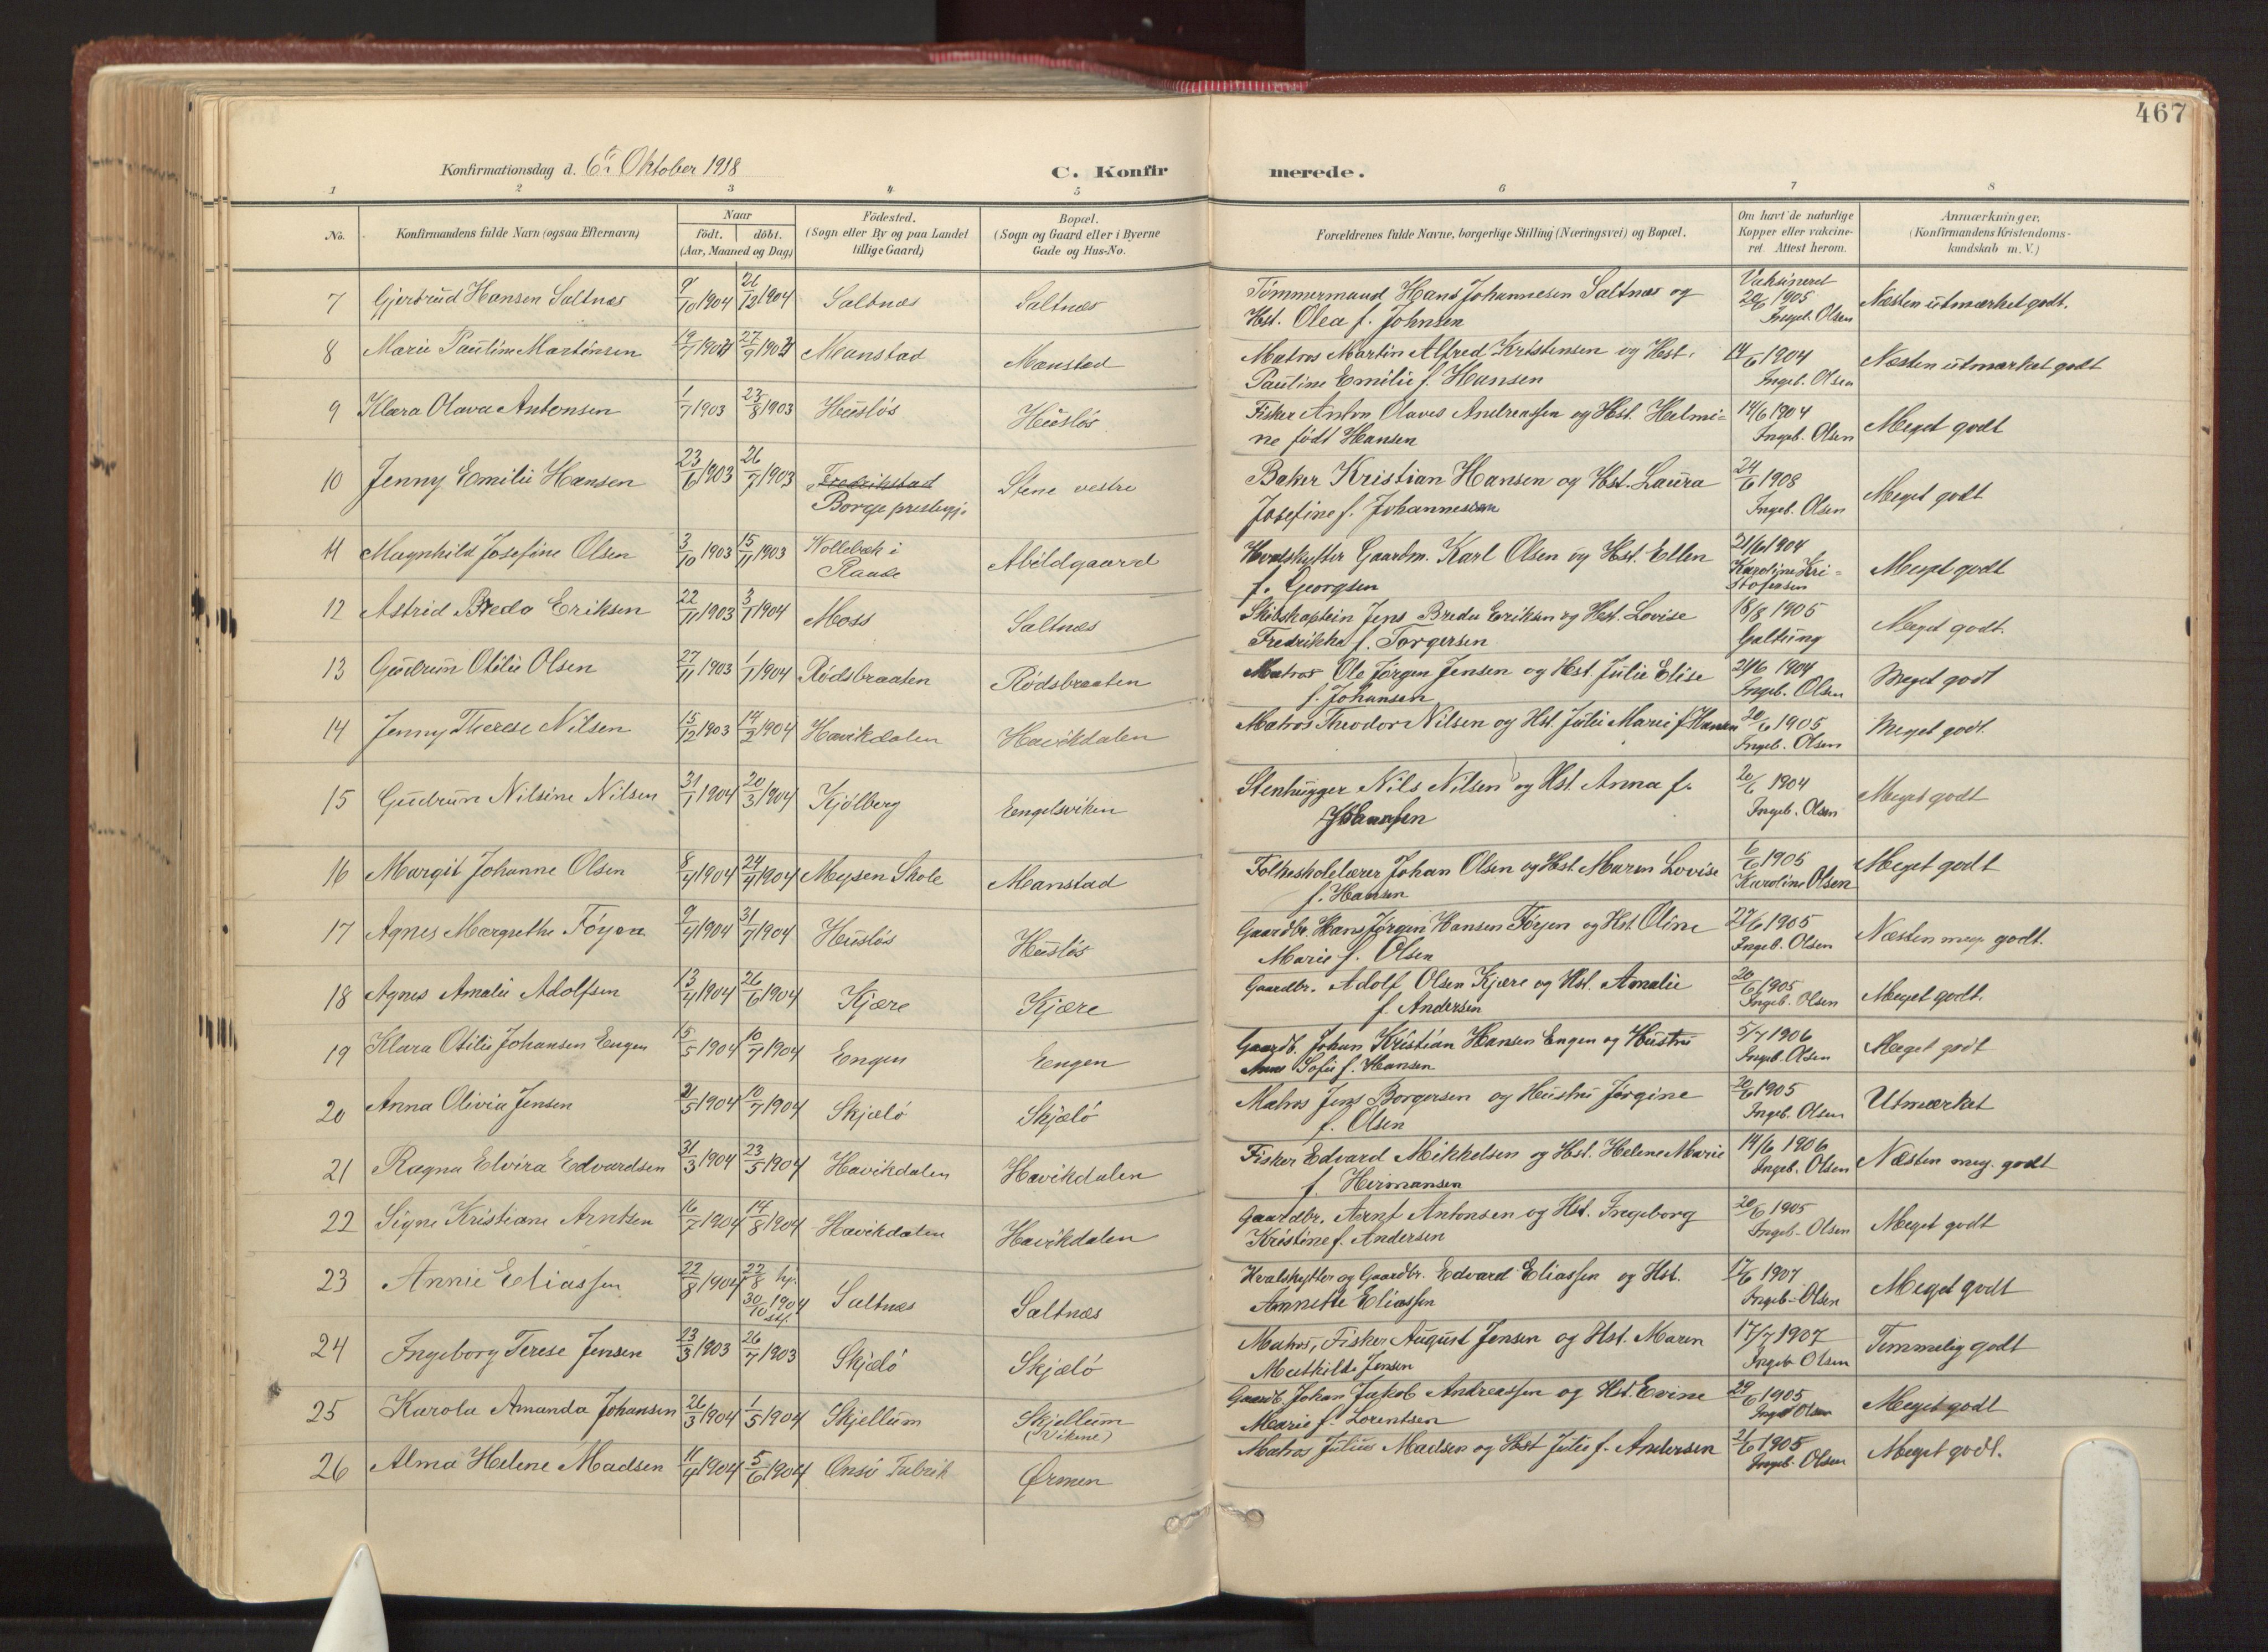 467
Konfirmationsdag d. 6te Oktober 1918
C. Konfirmerede.
1 2 3 4 5 6 7 8
No.
Konfirmandens fulde Navn (ogsaa Efternavn)
Naar
födt. döbt.
(Aar, Maaned og Dag)
Födested.
(Sogn eller By og paa Landet
tillige Gaard)
Bopæl.
(Sogn og Gaard eller i Byerne
Gade og Hus-No.
Forældrenes fulde Navne, borgerlige Stilling (Næringsvei) og Bopæl.
Om havt de naturlige
Kopper eller vakcine-
ret. Attest herom.
Anmærkninger.
(Konfirmandens Kristendoms-
kundskab m. V.)
7 Gjertrud Hansen Saltnæs 9/10 1904 26/12 1904 Saltnæs Saltnæs Tömmermand Hans Johannesen Saltnæs og
Hst. Olea f. Johnsen
Vaksineret
20/6 1905
Ingeb. Olsen
Næsten utmærket godt.
8 Marie Pauline Martinsen 19/7 1904 27/9 1904 Manstad Manstad Matros Martin Alfred Kristensen og Hst.
Pauline Emilie f. Hansen
14/6 1904
Ingeb. Olsen
Næsten utmærket godt
9 Klara Olava Antonsen 1/7 1903 23/8 1903 Huslös Huslös Fisker Anton Olaves Andreassen og Hst. Helmi=
ne født Hansen
14/6 1904
Ingeb. Olsen
Meget godt
10 Jenny Emilie Hansen 23/6 1903 26/7 1903 Fredrikstad
Borge prestegj. Stene vestre Baker Kristian Hansen og Hst. Laura
Josefine f. Johannessen
24/6 1908
Ingeb. Olsen
Meget godt
11 Magnhild Josefine Olsen 3/10 1903 15/11 1903 Kollebæk i
Raade Abildgaard Hvalskytter Gaardm. Karl Olsen og Hst. Ellen
f. Georgsen
21/6 1904
Karoline Kri=
stofersen
Meget godt
12 Astrid Breda Eriksen 22/11 1903 3/1 1904 Moss Saltnæs Skibskaptein Jens Breder Eriksen og Hst. Lovise
Fredrikke f. Torgersen
18/8 1905
Galtung
Meget godt.
13 Gudrun Otilie Olsen 27/11 1903 1/1 1904 Rödsbraaten Rödsbraaten Matros Ole Jörgen Jensen og Hst. Julie Elise
f. Johansen
21/6 1904
Ingeb. Olsen
Meget godt
14 Jenny Therese Nilsen 15/12 1903 14/2 1904 Havikdalen Havikdalen Matros Theodor Nilsen og Hst Julie Marie f. Hansen
20/6 1905
Ingeb. Olsen
Meget godt.
15 Gudrun Nilsine Nilsen 31/1 1904 20/3 1904 Kjölberg Engelsviken Stenhugger Nils Nilsen og Hst. Anna f.
Johansen
20/6 1904
Ingeb. Olsen
Meget godt
16 Margit Johanne Olsen 8/4 1904 24/4 1904 Mysen Skole Manstad Folkeskolelærer Johan Olsen og Hst. Maren Lovise
f. Hansen
6/6 1905
Karoline Olsen
Meget godt
17 Agnes Margrethe Föyen 9/4 1904 31/7 1904 Huslös Huslös Gaardbr. Hans Jörgen Hansen Föyen og Hst. Oline
Marie f. Olsen
27/6 1905
Ingeb. Olsen
Næsten meg. godt.
18 Agnes Amalie Adolfsen 13/4 1904 26/6 1904 Kjære Kjære Gaardbr. Adolf Olsen Kjære og Hst. Amalie
f. Andersen
20/6 1905
Ingeb. Olsen
Meget godt.
19 Klara Otilie Johansen Engen 15/5 1904 10/7 1904 Engen Engen Gaardb. Johan Kristian Hansen Engen og Hustru
Anne Sofie f. Hansen
5/7 1906
Ingeb. Olsen
Meget godt
20 Anna Olivia Jensen 21/5 1904 10/7 1904 Skjælö Skjælö Matros Jens Borgersen og Hustru Jörgine
f. Olsen
20/6 1905
Ingeb. Olsen
Utmærket
21 Ragna Elvira Edvardsen 31/3 1904 23/5 1904 Havikdalen Havikdalen Fisker Edvard Mikkelsen og Hst. Helene Marie
f. Hermansen
14/6 1906
Ingeb. Olsen
Næsten meg. godt
22 Signe Kristiane Arntsen 16/7 1904 14/8 1904 Havikdalen Havikdalen Gaardbr. Arnt Antonsen og Hst. Ingeborg
Kristine f. Andersen
20/6 1905
Ingeb. Olsen
Meget godt
23 Annie Eliassen 22/8 1904 22/8 hj.
30/10 1904
stf. Saltnæs Saltnæs Hvalskytter og Gaardbr. Edvard Eliassen og Hst.
Annette Eliassen
17/6 1907
Ingeb. Olsen
Meget godt
24 Ingeborg Terese Jensen 23/3 1903 26/7 1903 Skjælö Skjælö Matros, Fisker August Jensen og Hst. Maren
Mathilde Jensen
17/7 1907
Ingeb Olsen
Temmelig godt
25 Karola Amanda Johansen 26/3 1904 1/5 1904 Skjellum Skjellum
(Vikene) Gaardb. Johan Jakob Andreassen og Hst. Evine
Marie f. Lorentsen
29/6 1905
Ingeb Olsen
Meget godt
26 Alma Helene Madsen 11/4 1904 5/6 1904 Onsö Fabrik Ørmen Matros Julius Madsen og Hst Julie f. Andersen
21/6 1905
Ingeb. Olsen
Meget godt.